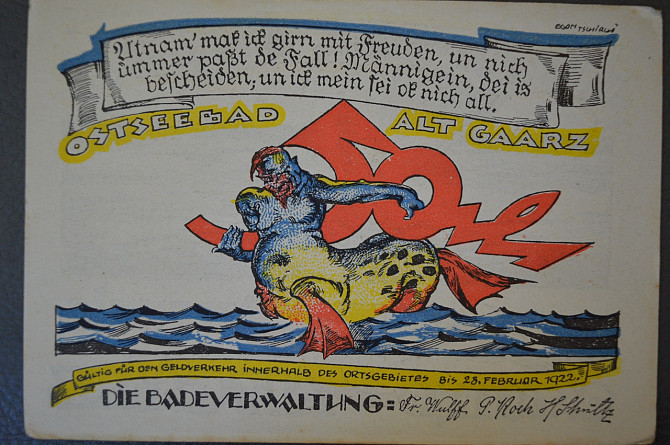 EGON TSCHIRCH
Utnam' mak ick girn mit Freuden, un nich
ümmer paßt de Fall! Männigein, dei is
bescheiden, un ick mein sei ok nich all.
OSTSEEBAD ALT GAARZ
GÜLTIG FÜR DEN GELDVERKEHR INNERHALB DES ORTSGEBIETES BIS 28. FEBRUAR 1922.
DIE BADEVERWALTUNG: Fr. Wulff P. Koch H Schultz